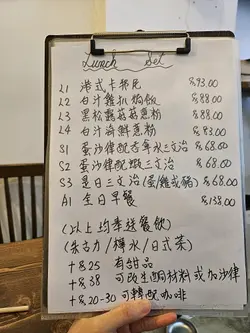 Lunch Set
L1 港式卡邦尼 $93.00
L2 白汁雞扒焗飯 $88.00
L3 黑松露菇菇意粉 $88.00
L4 白汁海鮮意粉 $93.00
S1 蛋沙律配 三文治 $68.00
S2 蛋沙律配 三文治 $68.00
S3 是日三文治(蛋/雞或豬) $68.00
A1 全日早餐 $138.00
(以上均奉送餐飲)
(朱古力/檸水/日式茶)
+$25 有甜品
+$38 可改生酮材料或加沙律
+$20-30 可轉配咖啡